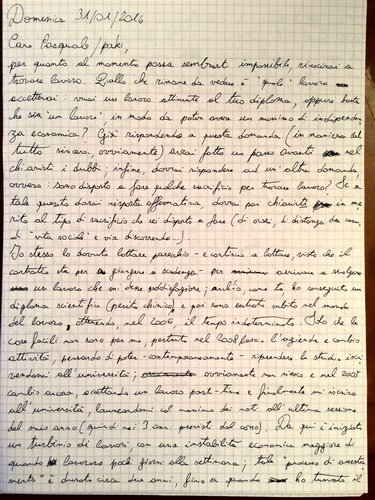 Domenica 31/01/2016
Caro Pasquale/paki,
per quanto al momento possa sembrarti impossibile, riuscirai a
trovare lavoro. Quello che rimane da vedere è "quale" lavoro
accetterai: vuoi un lavoro attinente al tuo diploma, oppure basta
che sia "un lavoro" in modo da poter avere un minimo di indipenden
za economica? Già rispondendo a questa domanda (in maniera del
tutto sincera, ovviamente) avrai fatto un passo avanti nel
chiarirti i dubbi; infine, dovrai rispondere ad un'altra domanda,
ovvero: sono disposto a fare qualche sacrificio per trovare lavoro? Se a
tale quesito darai risposta affermativa, dovrai poi chiarirti in me
rito al tipo di sacrificio che sei disposto a fare (di orari, di distanza da casa,
di "vita sociale" e via discorrendo..).
Io stesso ho dovuto lottare parecchio - e continuo a lottare, visto che il
contratto sta per giungere a scadenza - per arrivare a svolgere
un lavoro che mi desse soddisfazione; anch'io, come te ho conseguito un
diploma scientifico (perito chimico) e poi sono entrato subito nel mondo
del lavoro, ottenendo, nel 2006, il tempo indeterminato. Sto che le
cose facili non sono per me, pertanto nel 2008 lascio l'azienda e cambio
attività, pensando di poter - contemporaneamente - riprendere lo studio, iscri
vendomi all'università; ovviamente non riesco e nel 2008
cambio ancora, accettando un lavoro part-time e finalmente mi iscrivo
all'università, laureandomi col massimo dei voti all'ultima sessione
del mio anno (quindi nei 3 anni previsti dal corso). Da qui è iniziato
un turbinio di lavori, con una instabilità economica maggiore di
quando lavoravo pochi giorni alla settimana; tale processo di assesta
mento è durato circa due anni, fino a quando ho trovato il